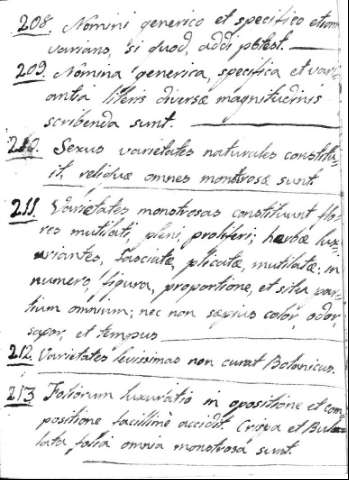 208. Nomini generico et specifico etiam
variano, si quod, addi potest.
209. Nomina generica, specifica et vari-
antia literis diversæ magnitudinis
scribenda sunt.
210. Sexus varietates naturales constitu-
it, reliquæ omnes monstrosæ sunt.
211. Varietates monstrosas constituunt flo-
res mutilati, pleni, proliferi, herbæ lux-
uriantes, fasciatæ, plicatæ, mutilatæ; in
numero, figura, proportione, et situ par-
tium omnium; nec non sæpius color, odor,
sapor, et tempus
212. Varietates levissimas non curat Botanicus.
213 Foliorum luxuriatio in opositione et com-
positione facillime accidit. Crispa et Bul-
lata folia omnia monstrosa sunt.